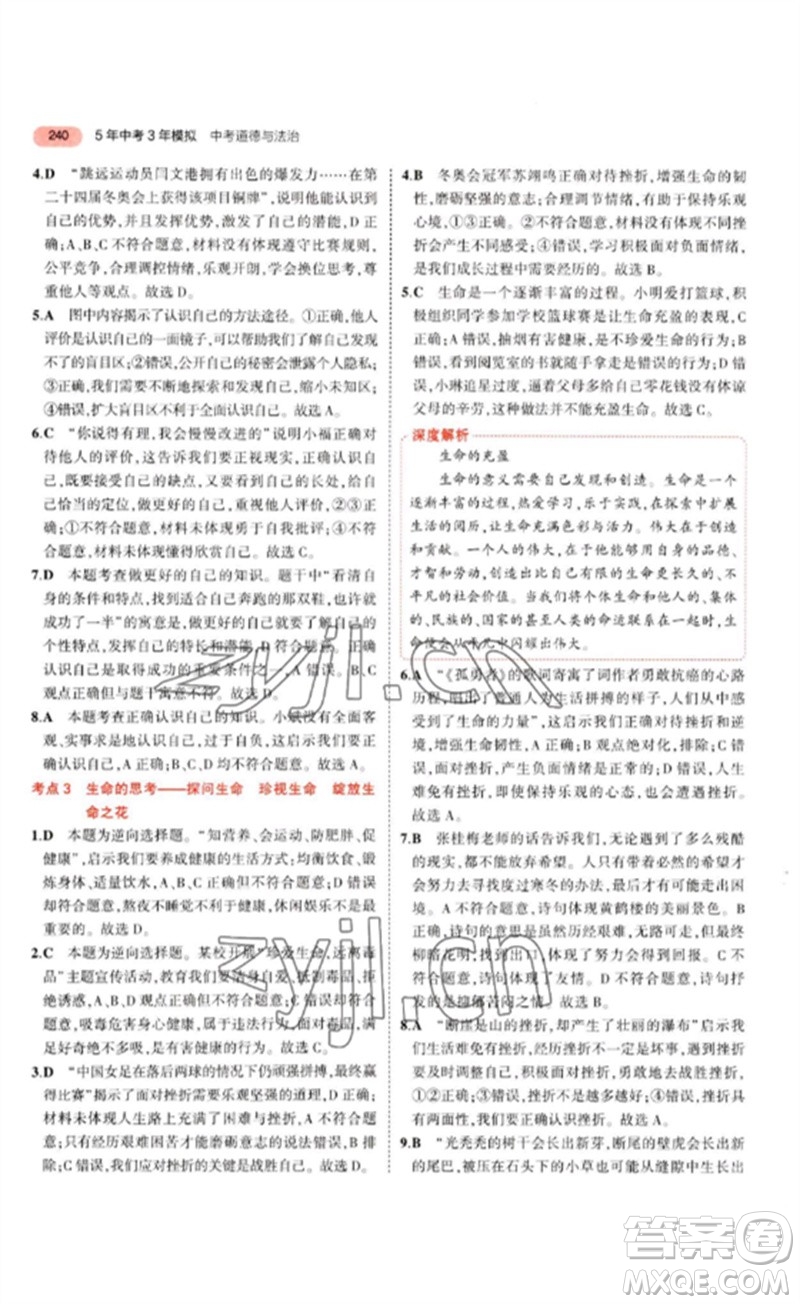 240 5年中考3年模拟 中考道德与法治
4.D “跳远运动员闫文港拥有出色的爆发力……在第
二十四届冬奥会上获得该项目铜牌”,揭示了认识到
自己的优势,并努力发展,激发了自己的潜能,D正
确;A、B、C不符合题意,材料没有体现遵守比赛规则,
公平竞争、合理调控情绪,乐观开朗、学会换位思考,尊
重他人等观点。故选D。
5.A 图中内容揭示了认识自己的方法途径。①正确,他人
评价是认识自己的一面镜子,可以帮助自己发现自己
不了的盲目区;②错误,公开自己的秘密会泄露个人隐私;
③正确,我们需要不断地探索和发现,缩小未知区;
④错误,扩大盲目区不利于全面认识自己。故选A。
6.C “你说得有理,我会慢慢改进的”说明小福正确对
待他人的评价,以理性的心态面对他人评价与建议,
既要接受自己的缺点,又要努力发展自己,给自己
恰当的定位,做更好的自己,重视他人评价,②③正
确;①不符合题意,材料未体现勇于自我批评;④不符
合题意,材料未体现懂得欣赏自己。故选C。
7.D 本题考查做更好的自己的知识。题干中“看清自
身的条件和特点,找到适合自己奔跑的那双鞋,也许就
成功了一半”的寓意是,做更好的自己,需要了解自己的
个性特点,发挥自己的特长和潜能,D符合题意。正
确认识自己是取得成功的重要条件之一,A错误;B、C
观点正确但与题干寓意不符,排除。故选D。
8.A 本题考查正确认识自己的知识。小斌没有全面客
观、实事求是地看待自己,而是以偏概全,这启示我们要
正确认识自己,A符合题意;B、C、D不符合题意。故选A。
考点3 生命的思考——探问生命 珍视生命 绽放生
命之花
1.D 本题为逆向选择题。“知营养、会运动、防肥胖、促
健康”,启示我们要养成健康的生活方式:均衡饮食、锻
炼身体、适量运动,A、B、C正确但不符合题意;D错误
却符合题意,熬夜不睡觉不利于健康,休闲娱乐不是最
重要的。故选D。
2.C 本题为逆向选择题。某校开展“珍爱生命,远离毒
品”主题宣传活动,教育我们要洁身自爱、抵制毒品、拒
绝诱惑,A、B、D观点正确但不符合题意;C错误但符合
题意,吸毒有害身体健康,属于违法行为,青少年为了
满足好奇绝不多次,是毫无自制力的表现。故选C。
3.D “中国女足在落后两球的情况下仍顽强拼搏,最终赢
得比赛”揭示了面对挫折要乐观坚强的道理,D正确;
材料未体现人生路上总会遇到挫折,A不符合题意;
材料没有体现经历艰难困苦才能磨砺意志的道理,B排
除;C错误,当代青少年战胜挫折的关键是战胜自己。故选D。
4.B 冬奥会冠军苏翊鸣正确对待挫折,增强生命的韧
性,磨砺坚强的意志;合理调节情绪,有助于保持乐观
心境,①③正确。②不符合题意,材料未体现不同挫
折会产生不同感受;④错误,学习积极面对负面情绪,
是我们成长过程中需要经历的。故选B。
5.C 生命是一个逐渐丰富的过程。小明爱打篮球,积
极组织同学参加学校篮球赛是让生命充盈的表现,C
正确;A错误,抽烟有害健康,是不珍爱生命的行为;B
错误,看到阅览室的书随手拿走是错误的行为;D错
误,小琳追星过度,通过父母多给自己零花钱没有体谅
父母的辛劳,这种做法并不能充盈生命。故选C。
深度解析
生命的充盈
生命的意义需要自己发现和创造。生命是一个
逐渐丰富的过程,热爱学习,乐于实践,在探索中扩展
生活的阅历,让生命充满色彩与活力。伟大在于创造
和贡献。一个人的伟大,在于他能够运用自身的品德、
才智和劳动,创造出比自己有限的生命更长久的、不
平凡的社会价值。当我们将个体生命和他人的、集体
的、民族的、国家的甚至人类的命运联系在一起时,生
命便会从平凡中闪耀出伟大。
6.A “《孤勇者》的歌词寄寓了词作者勇敢抗癌的心路
历程,唱出了普通人为生活拼搏的样子,人们从中
感受到了生命的力量”,这启示我们要正确对待挫折和逆
境,增强生命韧性,A正确;B观点绝对化,排除;C错
误,当我们遇到困难时,要主动向他人求助;D错误,人生
难免有挫折,我们无法避免,要勇敢面对挫折。
故选A。
7.B 张桂梅老师的话告诉我们,无论遇到了多么残酷
的现实,都不能放弃希望。人只有带着必然的希望
才能勇敢地寻找度过寒冬的办法,最后才能走出困
境。A不符合题意,诗句体现黄鹤楼的美丽景色。B
正确,诗句的意思是虽然历经艰难艰险,但最终
柳暗花明,找到出口,体现了努力终会得到回报。C不
符合题意,诗句体现了友情。D不符合题意,诗句抒
发的是抑郁苦闷的心情。故选B。
8.A “断崖是山的挫折,却产生了壮丽的瀑布”启示我
们挫折有利有弊,挫折并不一定是坏事,在遇到挫折
要及时调整自己,发现并发掘自己的生命力量,
①②正确;③错误,挫折不是越多越好;④错误,挫折
是不可避免的。故选A。
9.B “光秃秃的树干会长出新芽,断尾的壁虎会长出新
的尾巴,被压在石头下的小草也可从缝隙中生长出
zyjl.cn
zyjl.cn
答案圈
MXQE.COM